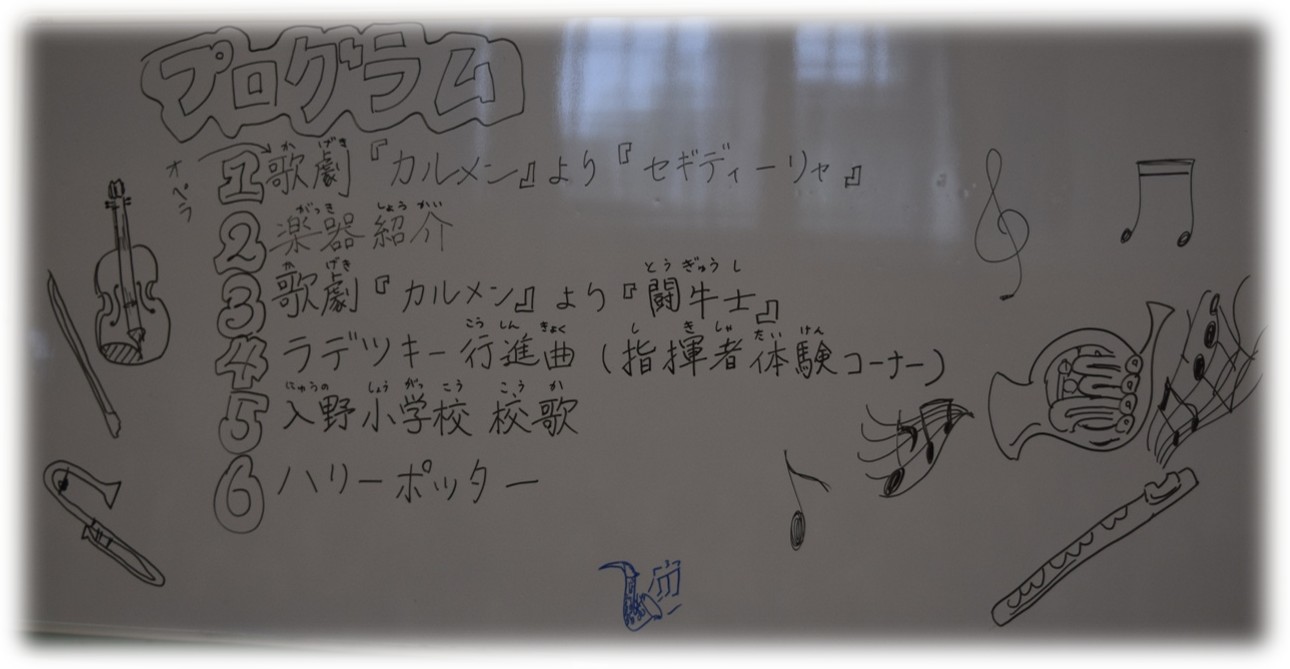 プログラム
オペラ
かげき
1歌劇『カルメン』より『セギディーリャ』
がっき しょうかい
2楽器紹介
かげき とうぎゅうし
3歌劇『カルメン』より『闘牛士』
こうしんきょく しきしゃたいけん
4ラデツキー行進曲(指揮者体験コーナー)
にゅうの しょうがっこう こうか
5入野小学校 校歌
6ハリーポッター